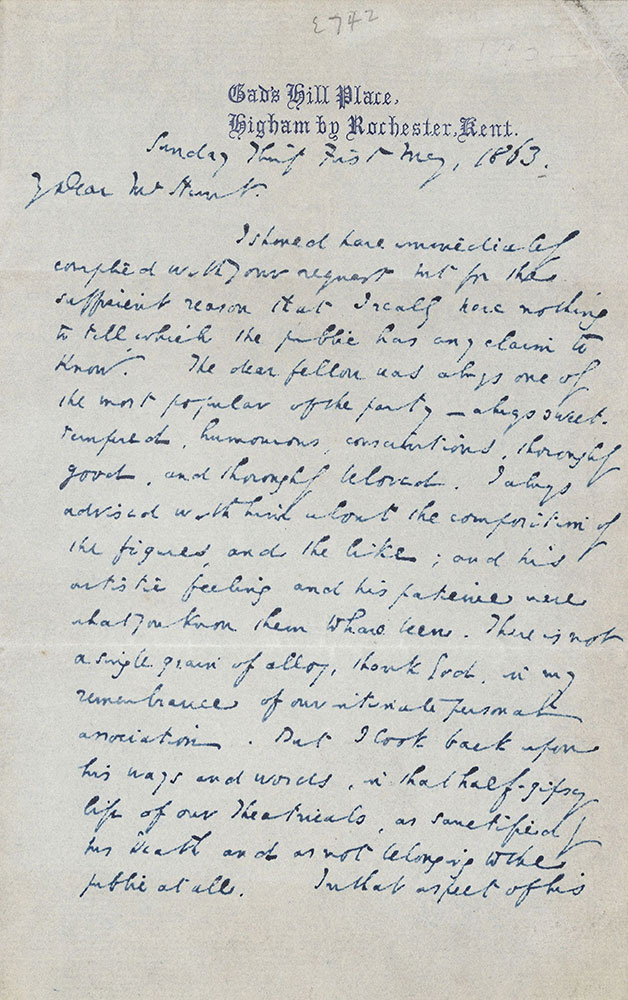 E742
Gad's Hill Place,
Higham by Rochester, Kent.
Sunday Thirty First May, 1863.
My Dear Mr Hunt.
I should have immediately
complied with your request but for the
sufficient reason that I really have nothing
to tell which the public has any claim to
know. The dear fellow was always one of
the most popular of the party – always sweet-
tempered, humourous, conscientious, thoroughly
good, and thoroughly beloved. I always
advised with him about the composition of
the figures, and the like; and his
artistic feeling and his patience were
what you know them to have been. There is not
a single grain of alloy, thank God, in my
remembrance of our intimate personal
association. But I look back upon
his ways and words, in that half-gipsy
life of our Theatricals, as sanctified by
his Death and as not belonging to the
public at all. In that aspect of his